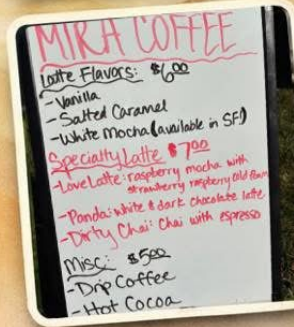 MIRA COFFEE
Latte Flavors: $6.00
- Vanilla
- Salted Caramel
- White Mocha (available in SF!)
Specialty Latte $7.00
- Love Latte: raspberry mocha with
strawberry raspberry cold foam
- Panda: white & dark chocolate latte
- Dirty Chai: Chai with espresso
Misc: $5.00
- Drip Coffee
- Hot Cocoa